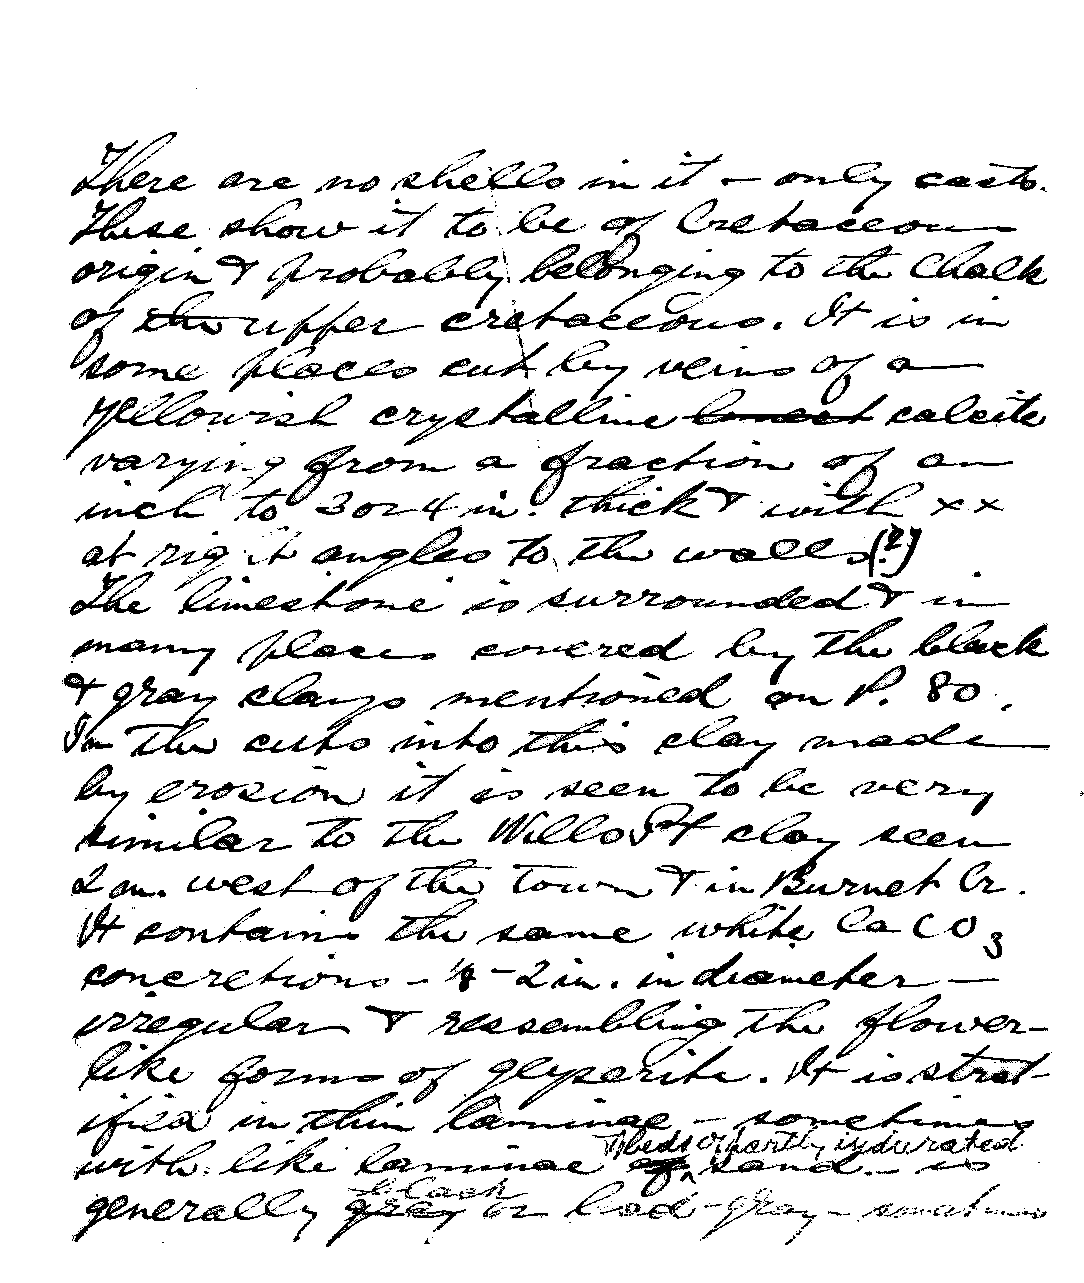 There are no shells in it – only casts.
These show it to be of Cretaceous
origin & probably belonging to the Chalk
of the upper cretaceous. It is in
some places cut by veins of a
yellowish crystalline calcite
varying from a fraction of an
inch to 3 or 4 in. thick & with xx
at right angles to the walls (?)
The limestone is surrounded & in
many places covered by the black
& gray clays mentioned on P. 80.
In the cuts into this clay made
by erosion it is seen to be very
similar to the Wills Pt clay seen
2 m. west of the town & in Burnet Cr.
It contains the same white CaCO3
concretions – ½ – 2 in. in diameter –
irregular & ressembling the flower-
like forms of geyserite. It is strat-
ified in thin laminae – sometimes
& beds of partly indurated
with like laminae of sand – is
black
generally gray or lead-gray – sometimes